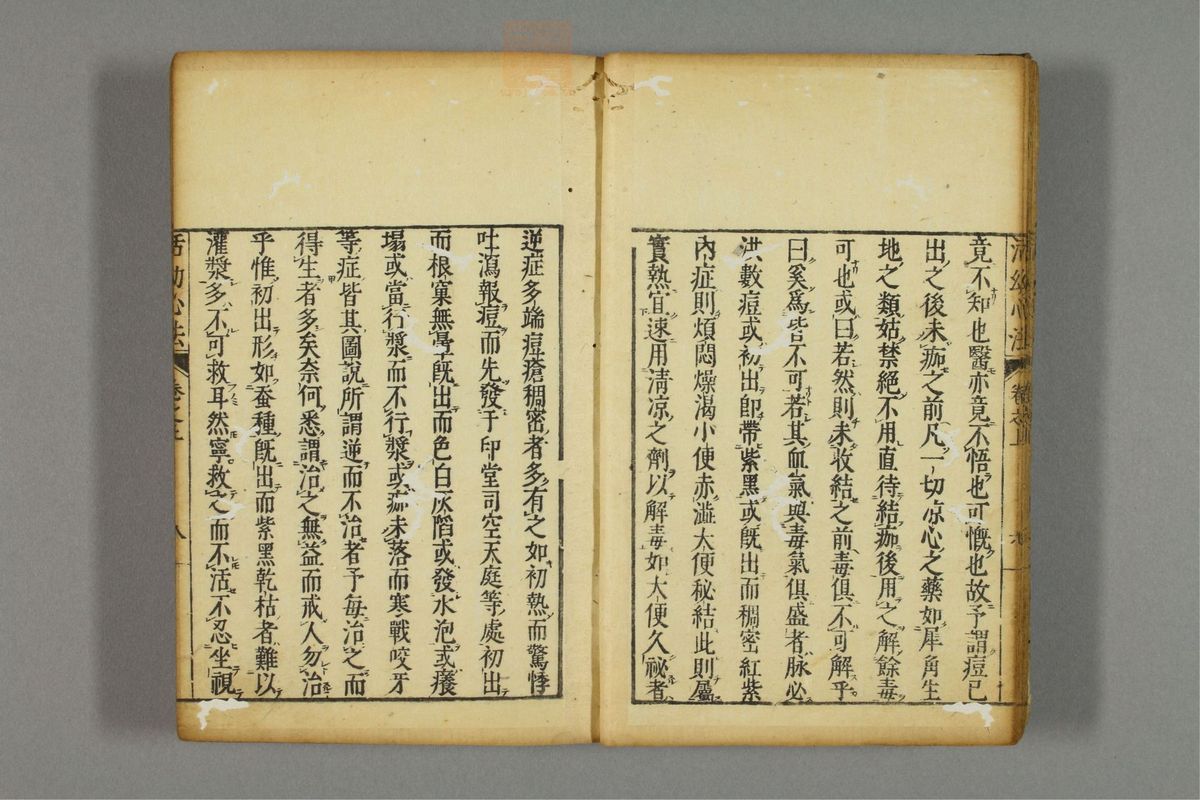 活幼心法
卷之上
竟不知也醫亦竟不悟也可慨也故予謂痘已
出之後未痂之前凡一切凉心之藥如犀角生
地之類姑禁絕不用直待結痂後用之解餘毒
可也或曰若然則未收結之前毒俱不可解乎
曰奚爲皆不可若其血氣與毒氣俱盛者脉必
洪數痘或初出卽帶紫黑或旣出而稠密紅紫
内症則煩悶燥渴小便赤澁大便秘結此則屬
實熱宜速用淸凉之劑以解毒如大便久祕者
逆症多端痘瘡稠密者多有之如初熱而驚悸
吐瀉報痘而先發于印堂司空天庭等處初出
而根窠無暈旣出而色白灰陷或發水泡或癢
塌或當行漿而不行漿或痂未落而寒戰咬牙
等症皆其圖說所謂逆而不治者予每治之而
得生者多矣奈何悉謂治之無益而戒人勿治
乎惟初出形如蚕種旣出而紫黑乾枯者難以
灌漿多不可救耳然寧救之而不活不忍坐視
活幼心法
卷之上
八